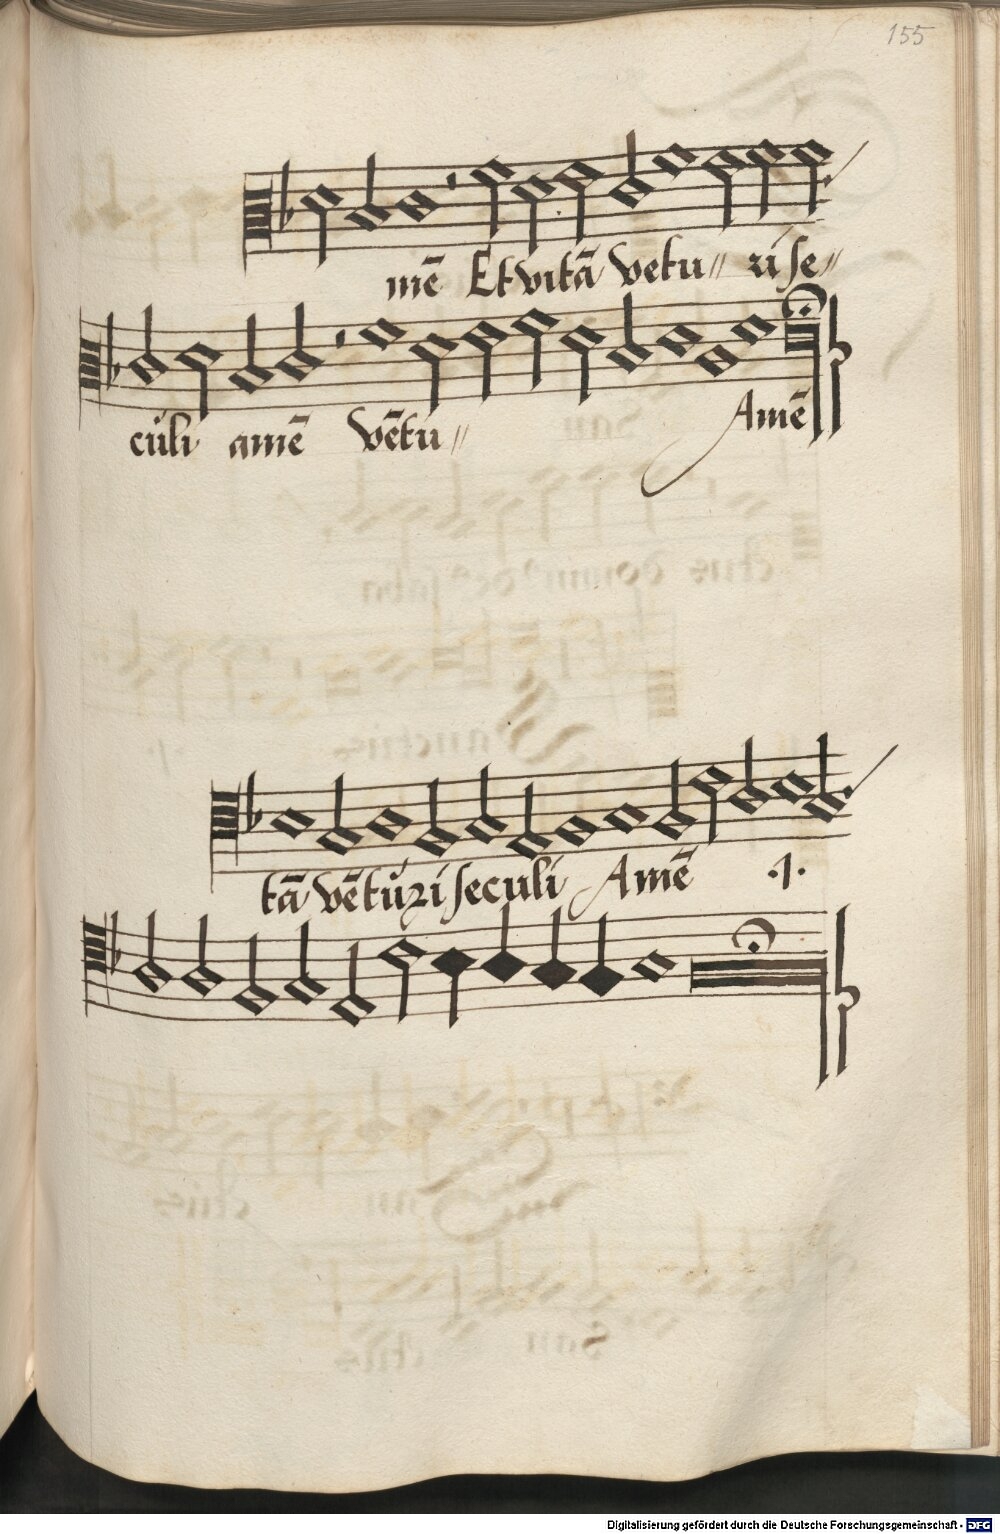 155
mē Et vitā vetu〃 ri se〃
culi amē vētu〃 Amē
tā vēturi seculi Amē .1.
Digitalisierung gefördert durch die Deutsche Forschungsgemeinschaft - DFG